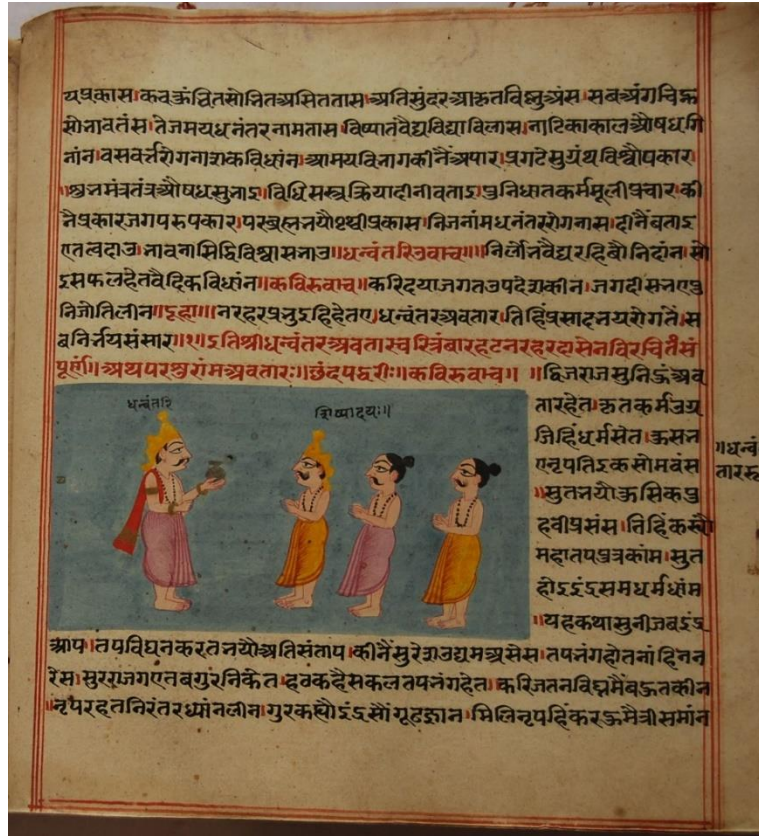 यप्रकास।कवऊंद्वितसोनितअसिततास।अतिसुंदरआकृतविष्णुअंस।सबअंगचिह्न
सोनावतंस।तेजमयधनंतरनामतास।विष्पातवैद्यविद्याविलास।नाटिकाकालऔषधगि
नांन।वसवर्त्तरोगनाशकविधांन।आमयविनागकीनैंअपार।प्रगटेसुग्रंथविश्वोपकार।
मंत्रतंत्रऔषधसुनाऽ।विधिसस्त्रक्रियादीनीवताऽ।पुनिधातकर्ममूलीप्रचार।की
नैप्रकारजगपरुपकार।परब्रह्मनयौपृथ्वीप्रकास।निजनांमधनंतररोगनास।दानैंबताऽ
नावनासिद्धिविश्वासनाउ॥धन्वंतरिउवाच॥॥निर्लोनवैद्यरहिबौनिदांन।सो
ऽसफलहेतवैदिकविधांन॥कविरुवाच॥करिदयाजगतउपदेशकीन।जगदीसनएप्र
निजोतिलीन॥दूहा॥॥नरहरप्रनुऽहिहेतए।धन्वंतरअवतार।तिहिंप्रसादनयरोगतें।स
बनिर्नयसंसार॥१॥ऽतिश्रीधन्वंतरअवतारचरित्रंबारहटनरहरदासेनविरचितंसं
पूर्णं॥अथपरशुरांमअवतारः॥छंदपद्धरीः॥कविरुवाच॥॥द्विजराजसुनिऊंअव
धन्वंतरि
शिष्पादयः॥
तारहेत।कृतकर्मउग्र
जिहिंधर्मसेत।ऊसन
एनृपतिऽकसोमवंस
॥सुतनयौऊसिकपु
हवीप्रसंस।तिहिंकस्यौ
महातपपुत्रकांम।सुत
होऽइंऽसमधर्मधांम
॥यहकथासुनीजब
॥धन्वं
ताररू
आप।तपविघनकरतनयौअतिसंताप।कीनैंसुरेशउद्यमअसेस।तपनंगहोतनांहिनन
रेस।सुरराजगएतबगुरनिकेत।हवकहैसकलतपनंगहेत।करिजतनविघ्नमैंबऊतकीन
॥नृपरहतनिरंतरध्यांनलीन।गुरकस्यौसौंगूढज्ञान।मिलिनृपहिंकरऊमैत्रीसमांन